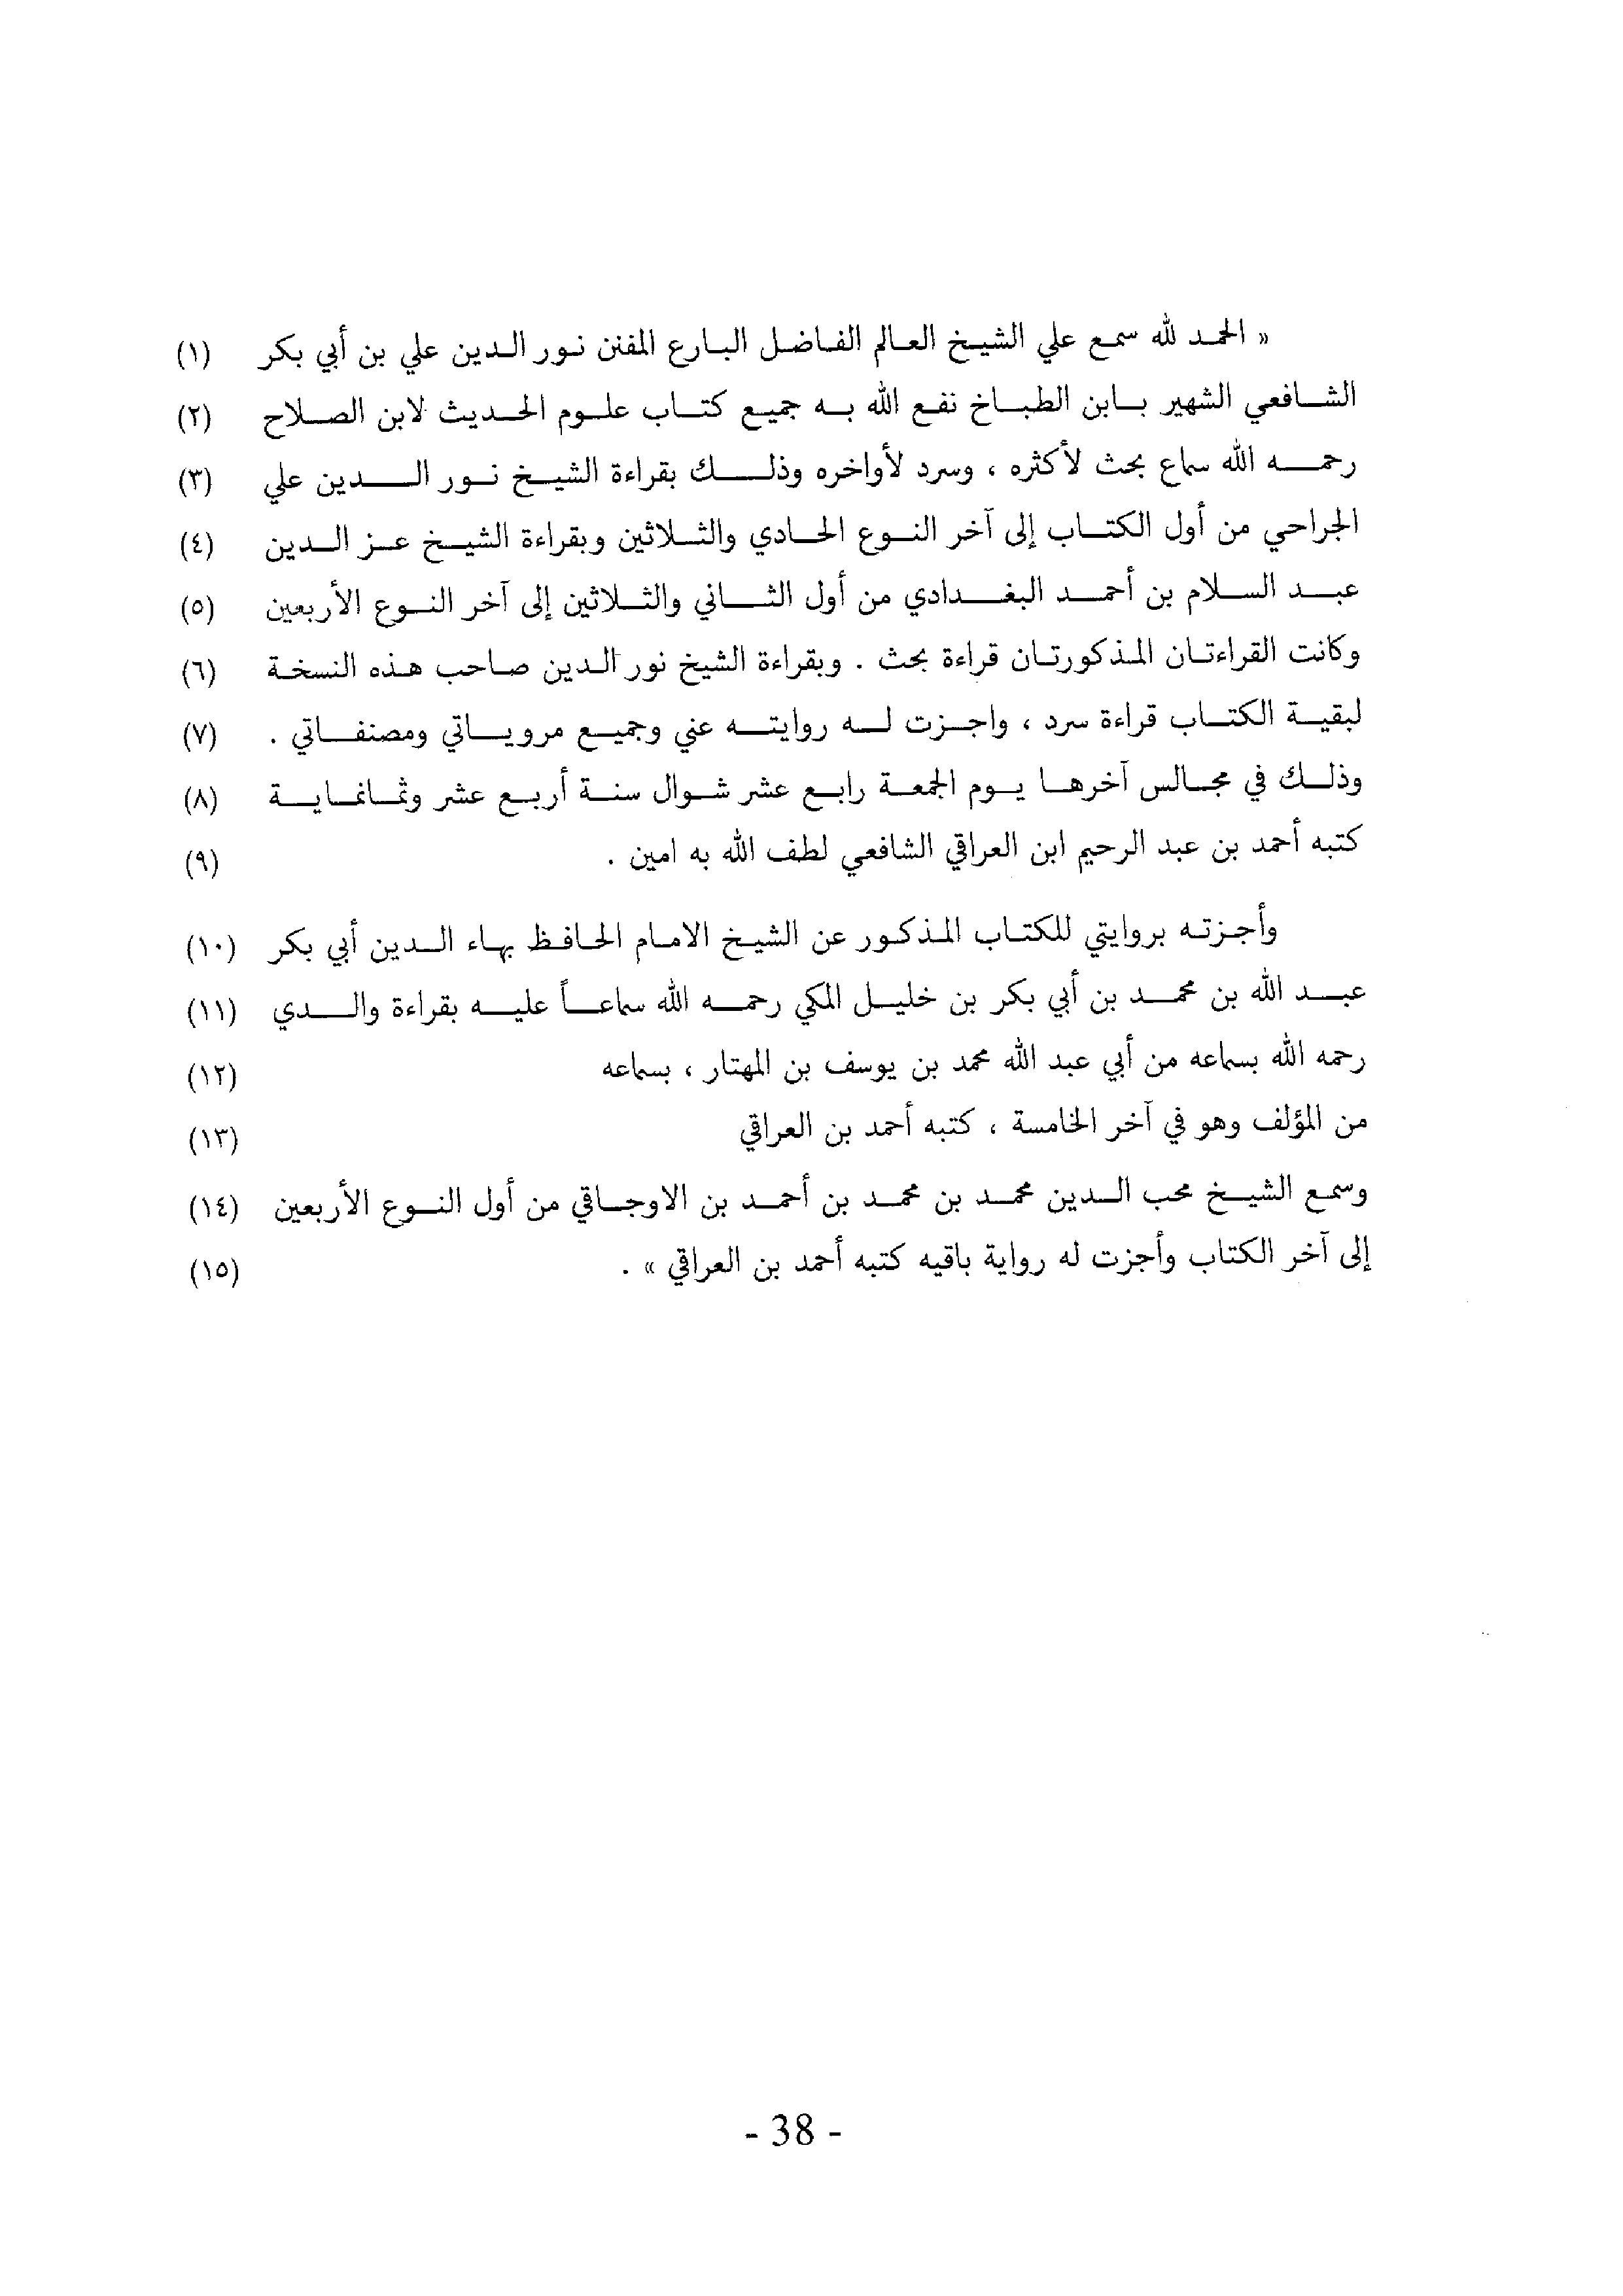 « الحمد لله سمع علي الشيخ العالم الفاضل البارع المفنن نور الدين علي بن أبي بكر (١)
الشافعي الشهير بابن الطباخ نفع الله به جميع كتاب علوم الحديث لابن الصلاح (٢)
رحمه الله سماع بحث لأكثره ، وسرد لأواخره وذلك بقراءة الشيخ نور الدين علي (٣)
الجراحي من أول الكتاب إلى آخر النوع الحادي والثلاثين وبقراءة الشيخ عز الدين (٤)
عبد السلام بن أحمد البغدادي من أول الثاني والثلاثين إلى آخر النوع الأربعين (٥)
وكانت القراءتان المذكورتان قراءة بحث . وبقراءة الشيخ نور الدين صاحب هذه النسخة (٦)
لبقية الكتاب قراءة سرد ، واجزت له روايته عني وجميع مروياتي ومصنفاتي . (٧)
وذلك في مجالس آخرها يوم الجمعة رابع عشر شوال سنة أربع عشر وثمانماية (٨)
كتبه أحمد بن عبد الرحيم ابن العراقي الشافعي لطف الله به امين . (٩)
وأجزته بروايتي للكتاب المذكور عن الشيخ الامام الحافظ بهاء الدين أبي بكر (١٠)
عبد الله بن محمد بن أبي بكر بن خليل المكي رحمه الله سماعاً عليه بقراءة والدي (١١)
رحمه الله بسماعه من أبي عبد الله محمد بن يوسف بن المهتار ، بسماعه (١٢)
من المؤلف وهو في آخر الخامسة ، كتبه أحمد بن العراقي (١٣)
وسمع الشيخ محب الدين محمد بن محمد بن أحمد بن الاوجاقي من أول النوع الأربعين (١٤)
إلى آخر الكتاب وأجزت له رواية باقيه كتبه أحمد بن العراقي » . (١٥)
- 38 -